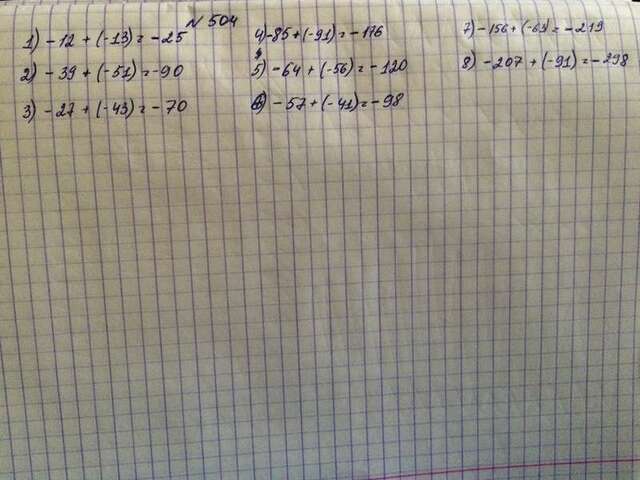 N 504
1) -12 + (-13) = -25
2) -39 + (-51) = -90
3) -27 + (-43) = -70
4) -85 + (-91) = -176
5) -64 + (-56) = -120
6) -57 + (-41) = -98
7) -156 + (-63) = -219
8) -207 + (-91) = -298